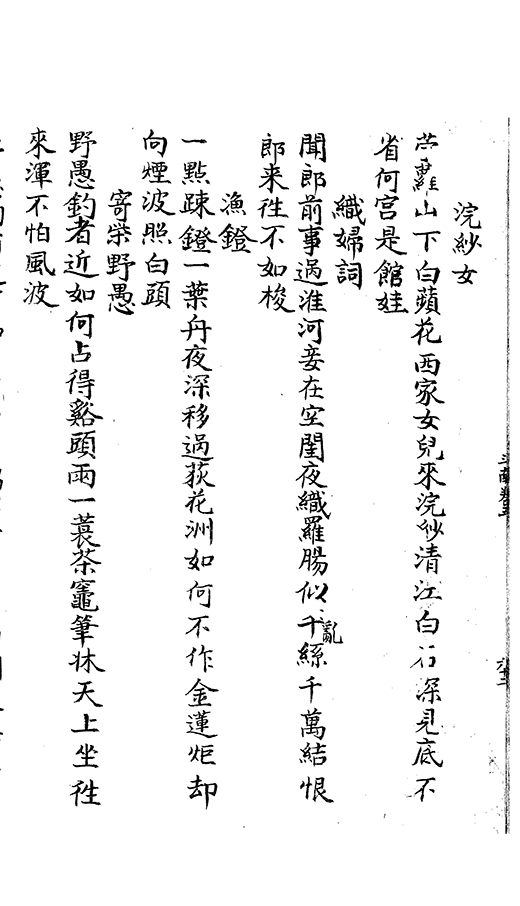 浣紗女
苧蘿山下白蘋花西家女兒來浣紗清江白石深見底不
省何宮是館娃
織婦詞
聞郎前事過淮河妾在空閨夜織羅腸似亂千絲千萬結恨
郎来往不如梭
漁鐙
一點踈鐙一葉舟夜深移過荻花洲如何不作金蓮炬却
向煙波照白頭
寄柴野愚
野愚釣者近如何占得谿頭雨一蓑茶竈筆牀天上坐往
來渾不怕風波